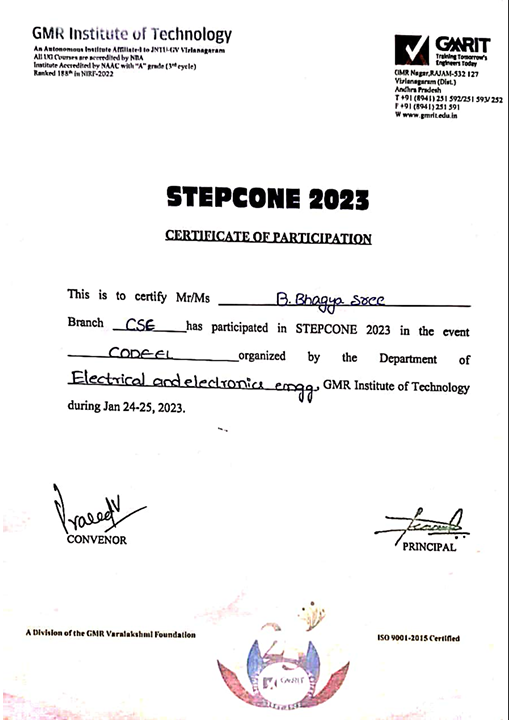 GMR Institute of Technology
An Autonomous Institute Affiliated to JNTU-GV Vizianagaram
All UG Courses are accredited by NBA
Institute Accredited by NAAC with "A" grade (3rd cycle)
Ranked 188th in NIRF-2022
GMRIT
Training Tomorrow's
Engineers Today
GMR Nagar,RAJAM-532 127
Vizianagaram (Dist.)
Andhra Pradesh
T +91 (8941) 251 592/251 593/ 252
F +91 (8941) 251 591
W www.gmrit.edu.in
STEPCONE 2023
CERTIFICATE OF PARTICIPATION
This is to certify Mr/Ms B. Bhagya Sree
Branch CSE has participated in STEPCONE 2023 in the event
CODEEL organized by the Department of
Electrical and electronics emgg, GMR Institute of Technology
during Jan 24-25, 2023.
CONVENOR
PRINCIPAL
A Division of the GMR Varalakshmi Foundation
ISO 9001-2015 Certified
GMRIT